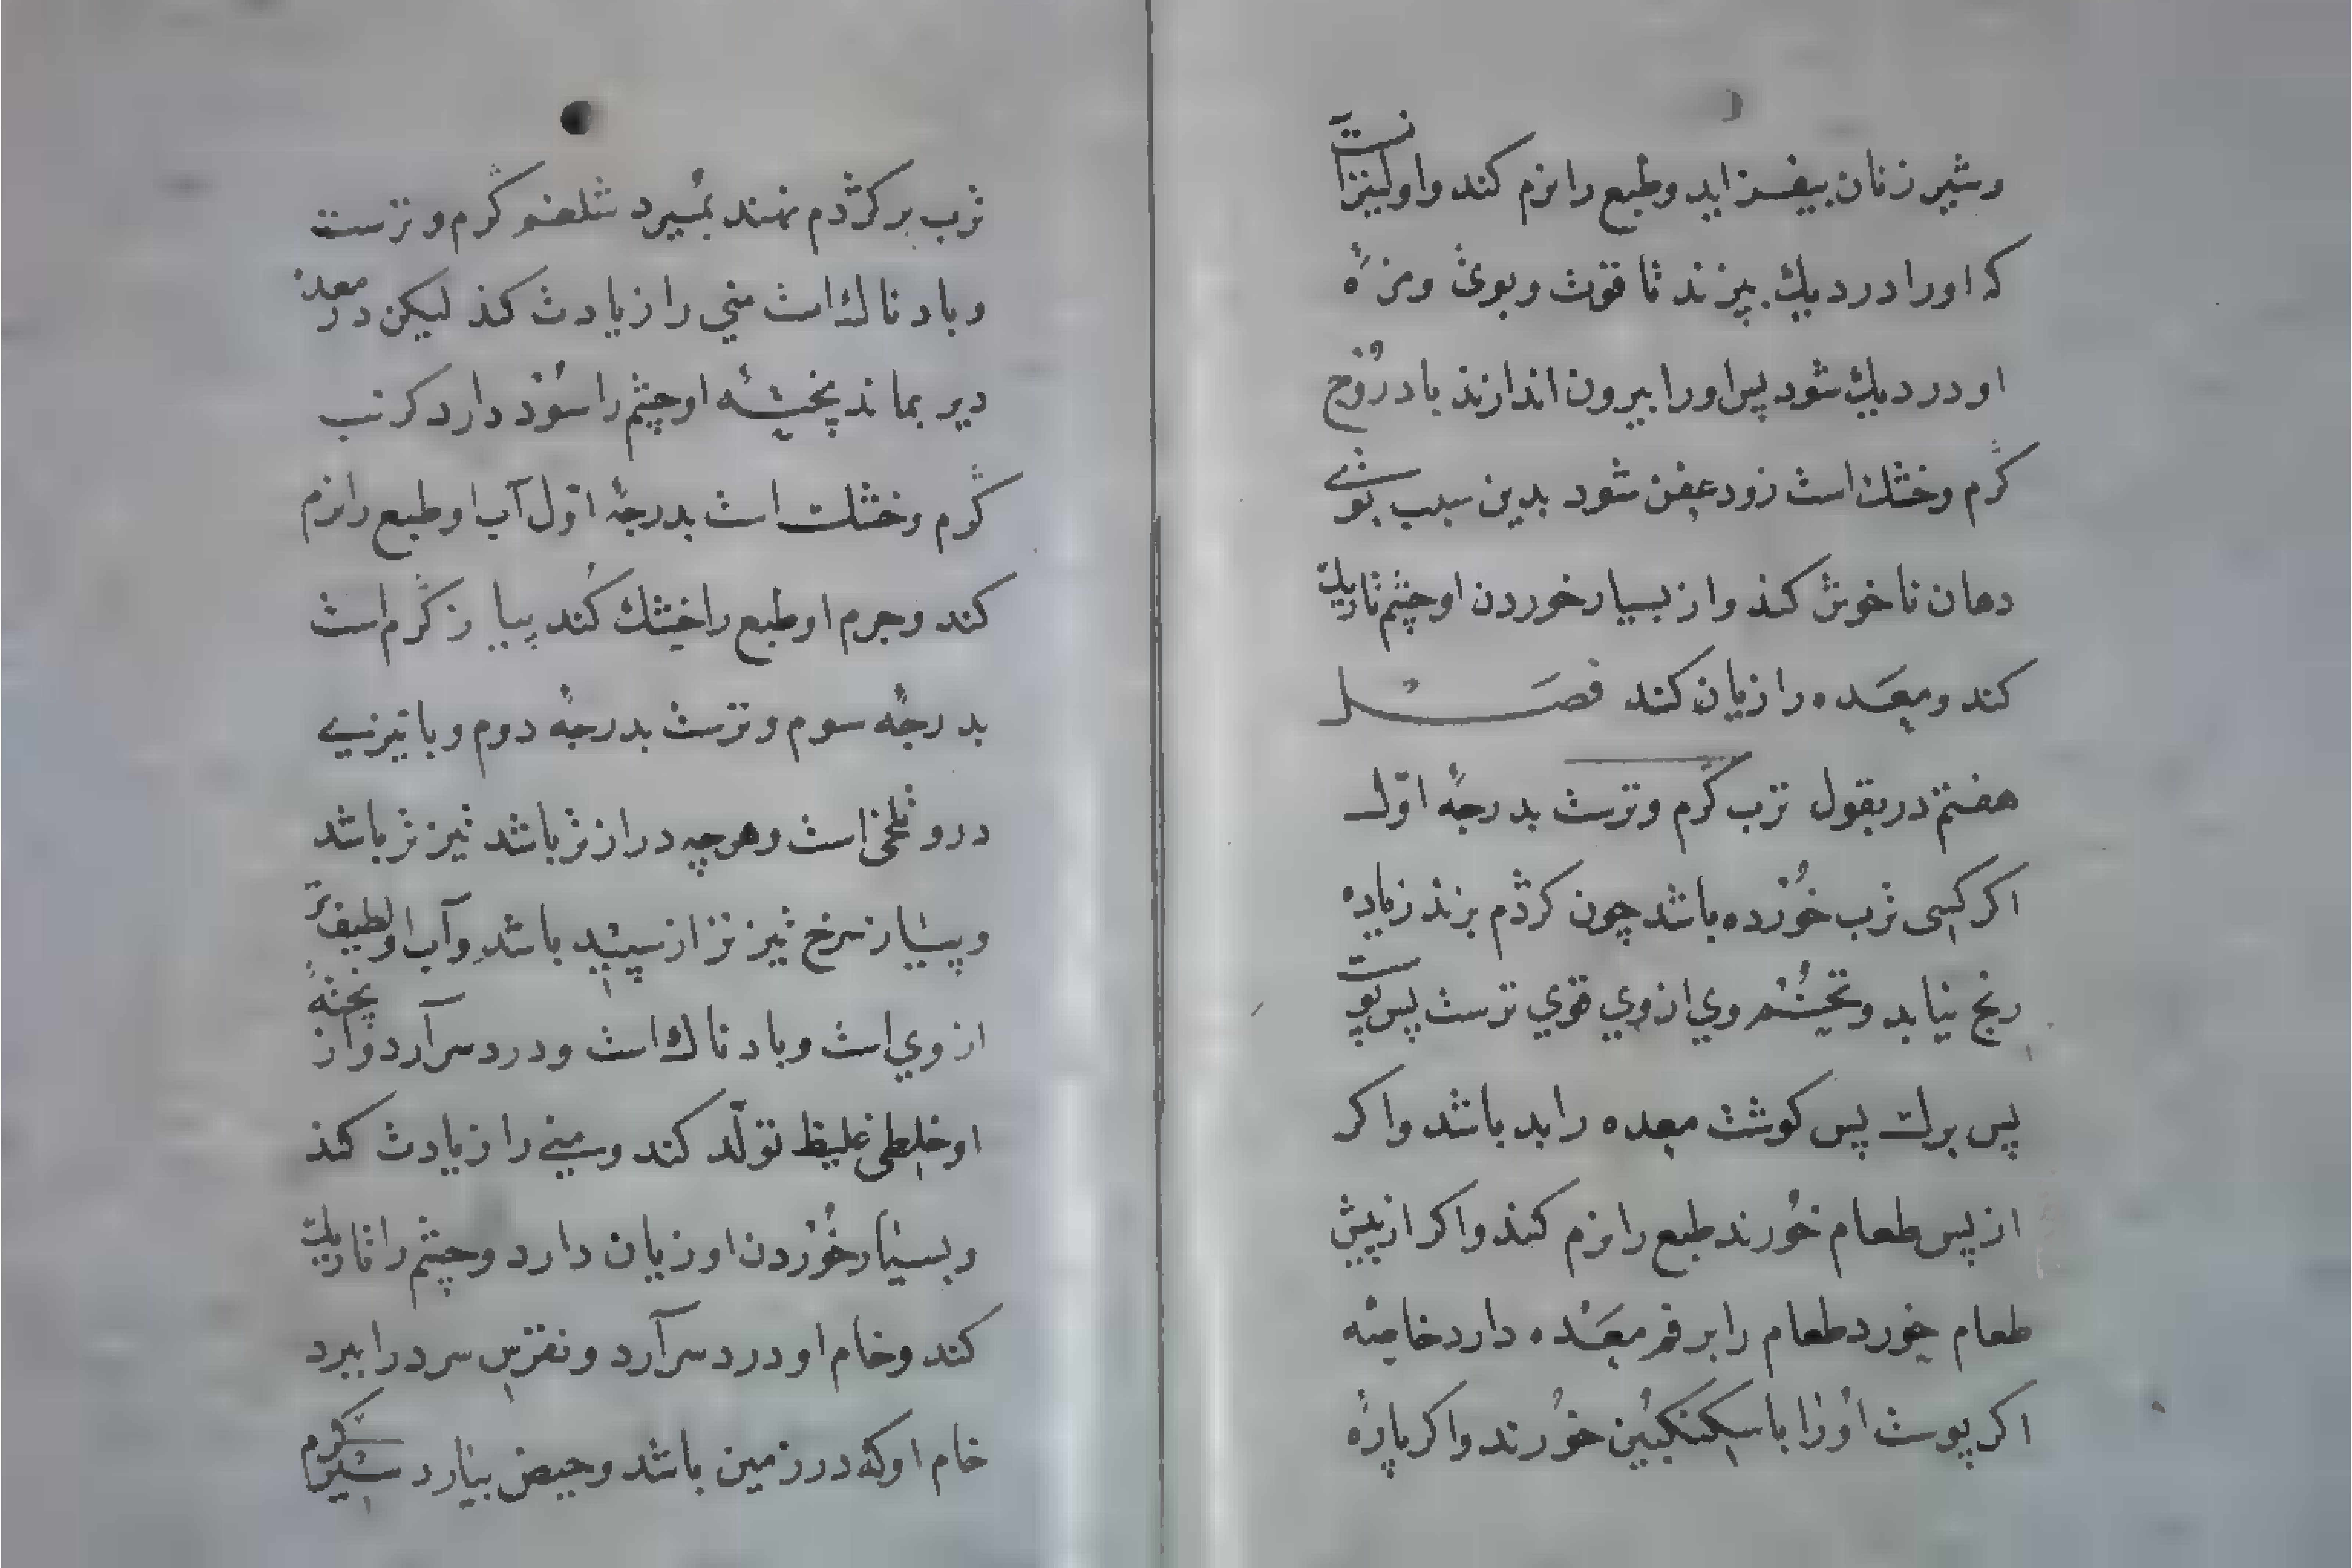 وشیر زنان بیفزاید وطبع را نرم کند واولیتر آنست
که اورا در دیك بپزند تا قوت وبوی ومزهٔ
او در دیك شود پس اورا بیرون اندازند بادروج
کرم وخشك است زود عفن شود بدین سبب بوی
دهان ناخوش کند واز بسیار خوردن او چشم تاریك
کند ومعده را زیان کند فصل
هفتم در بقول ترب کرم وترست بدرجهٔ اوّل
اکر کسی ترب خورده باشد چون کژدم بزند زیاده
رنج نیابد وتخم وي از وي قوي ترست پس پوست
پس برك پس کوشت معده را بد باشد واکر
از پس طعام خورند طبع را نرم کند واکر از پیش
طعام خورد طعام را بر فم معده دارد خاصه
اکر پوست اورا با سکنکبین خورند واکر پارهٔ
ترب بر کژدم نهند بمیرد شلغم کرم وترست
وباد ناك است مني را زیادت کند لیکن در معده
دیر بماند پختهٔ او چشم را سود دارد کرنب
کرم وخشك است بدرجهٔ اوّل آب او طبع را نرم
کند وجرم او طبع را خشك کند پیاز کرم است
بدرجهٔ سوم وترست بدرجهٔ دوم وبا تیزیی
درو تلخی است وهرچه درازتر باشد تیزتر باشد
وپیاز سرخ تیزتر از سپید باشد وآب او لطیف تر
از وي است وباد ناك است ودرد سر آرد واز پختهٔ
او خلطی غلیظ تولّد کند ومنی را زیادت کند
وبسیار خوردن او زیان دارد وچشم را تاریك
کند وخام او درد سر آرد ونقرس سرد را ببرد
خام او که در زمین باشد وحیض بیارد سیر کرم